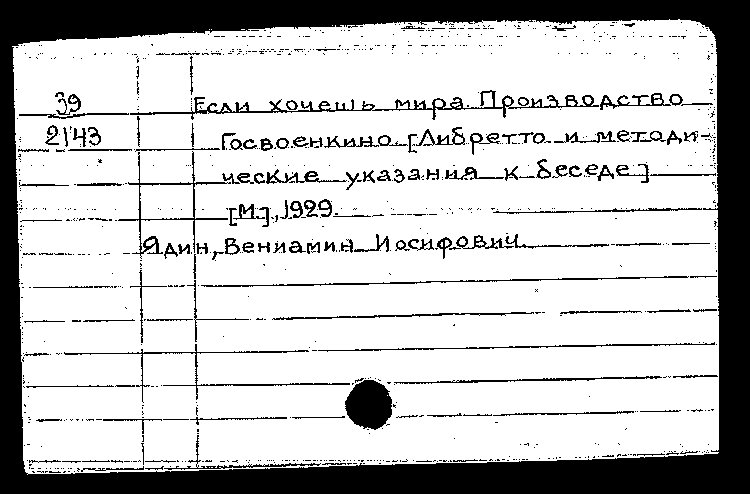 39
2143
Если хочешь мира. Производство
Госвоенкино. [Либретто и методи-
ческие указания к беседе]
[М.], 1929.
Ядин, Вениамин Иосифович.